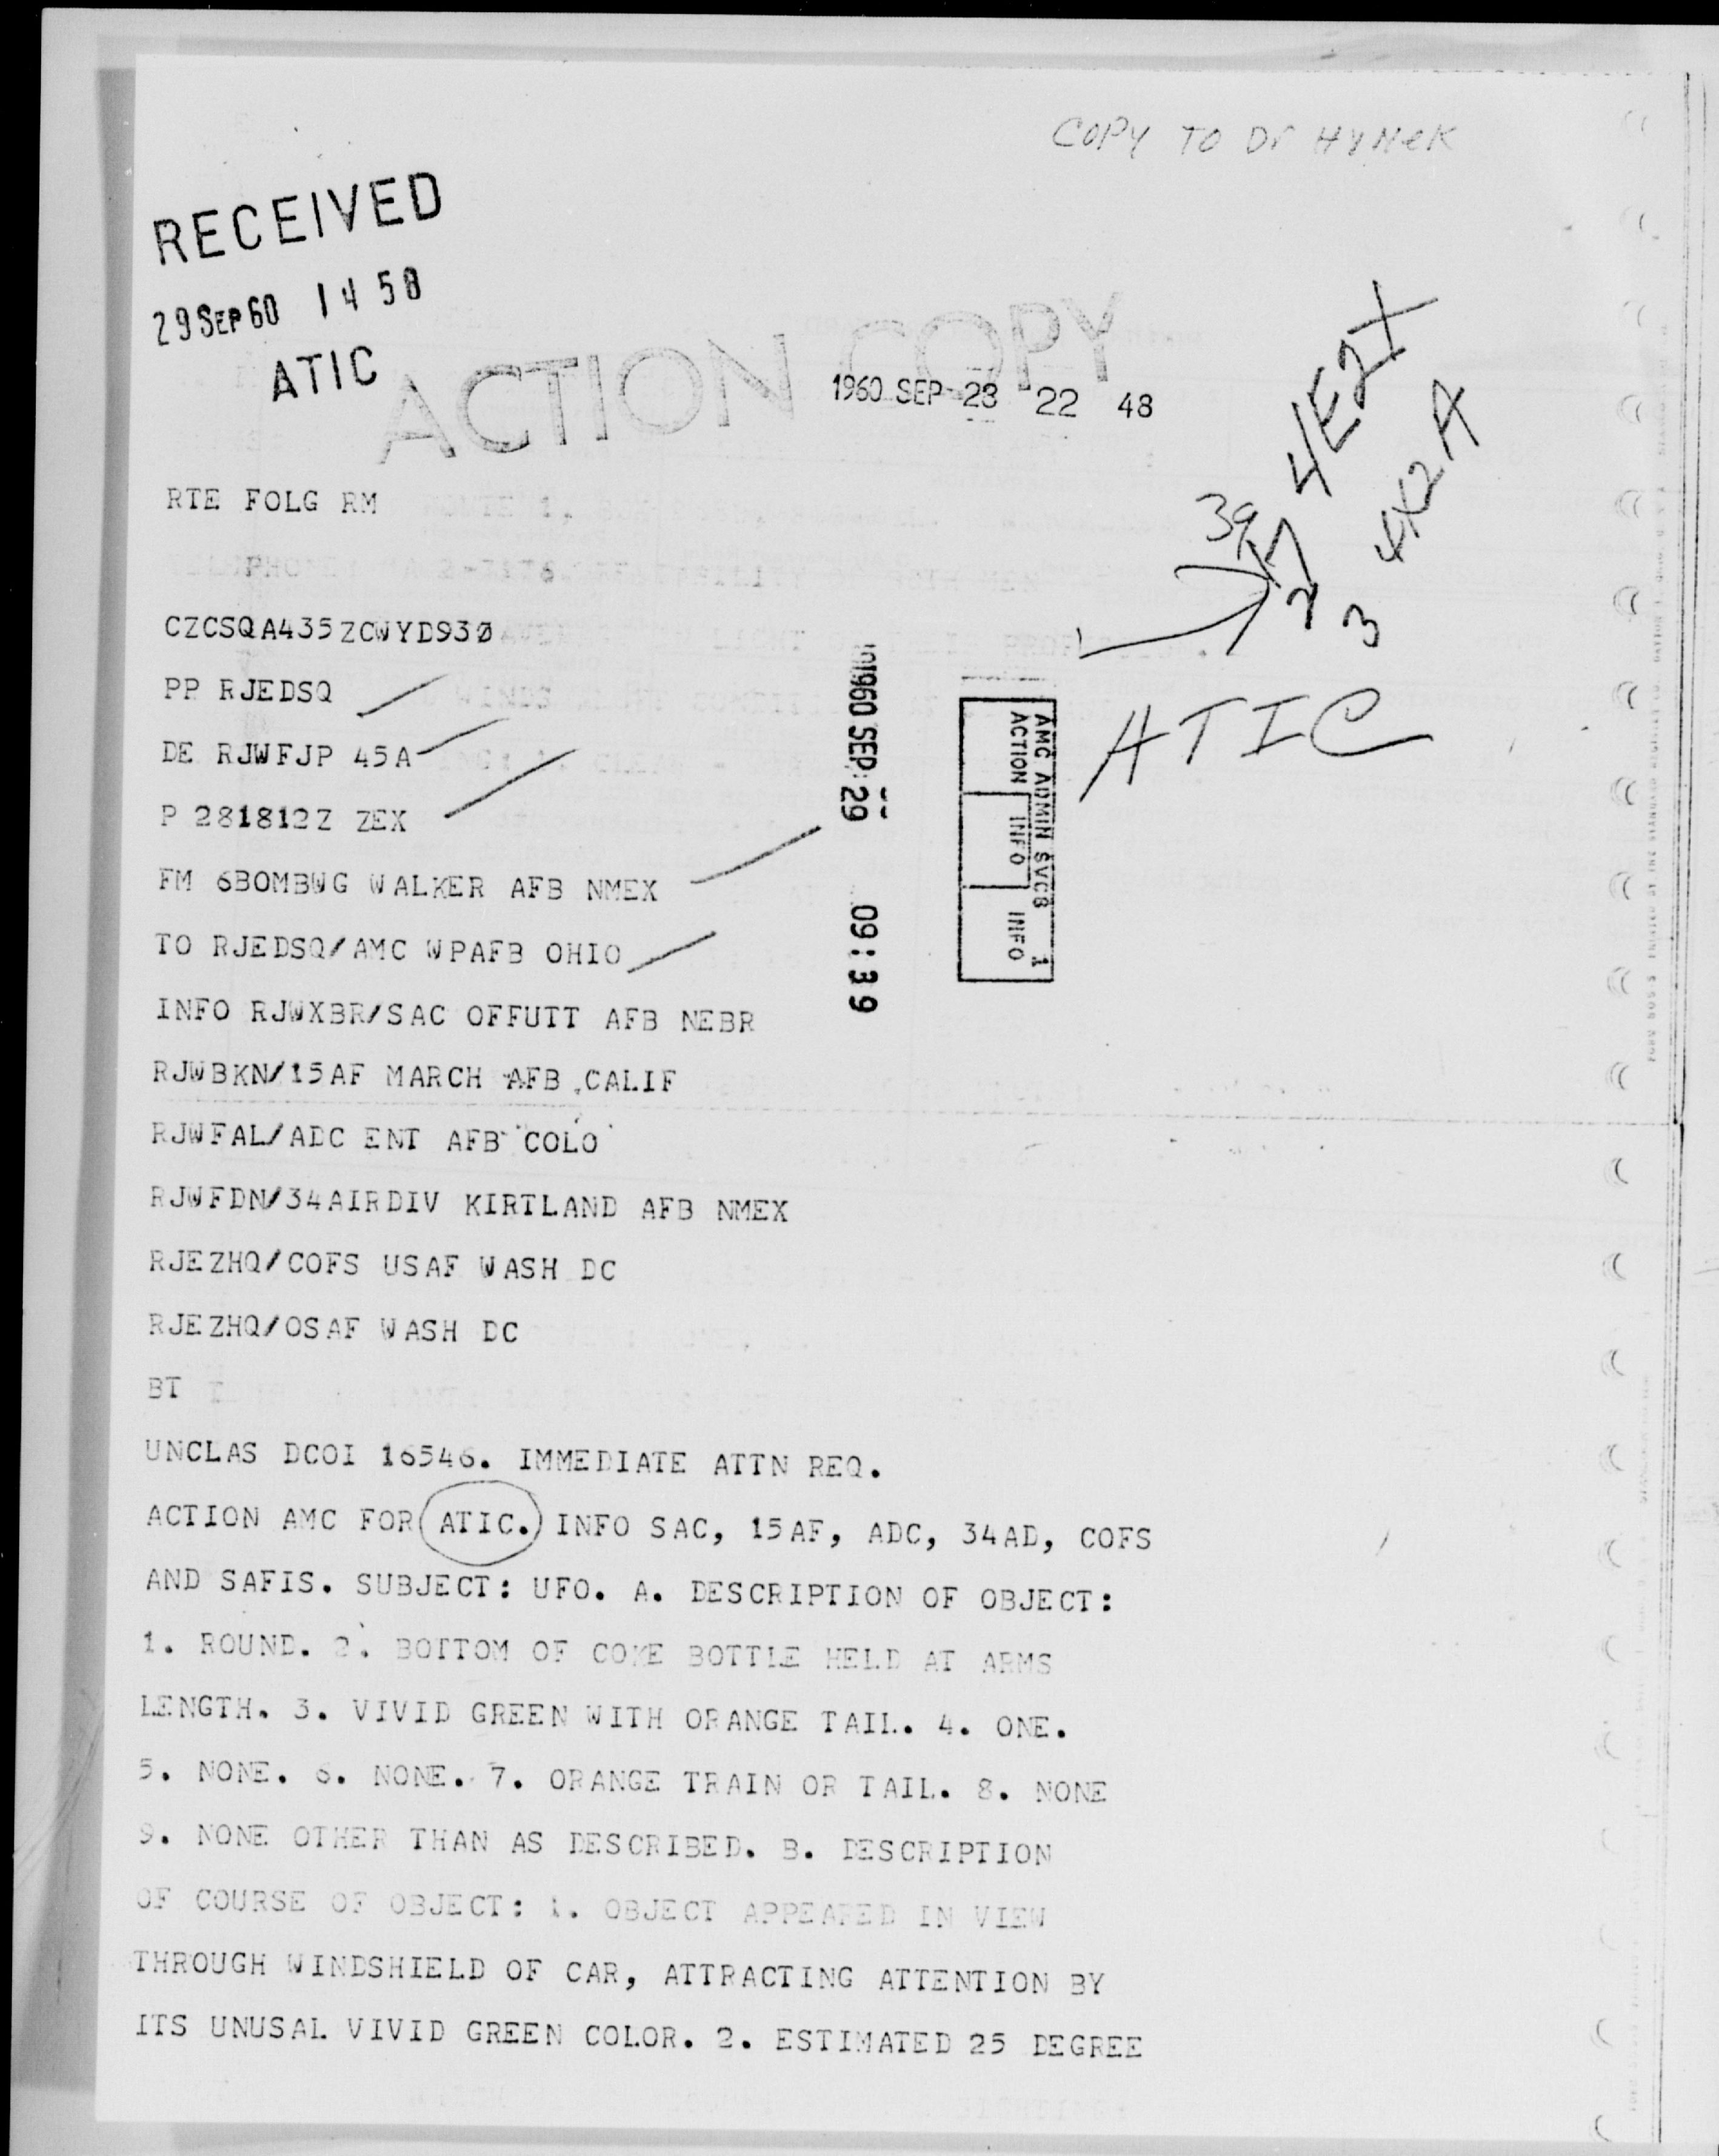 COPY TO Dr HYNeK
RECEIVED
29 SEP 60 14 58
ATIC
ACTION COPY
1960 SEP 28 22 48
4E2X
4X2A
3
ATIC
RTE FOLG RM
CZCSQA435ZCWYD930
PP RJEDSQ
DE RJWFJP 45A
P 281812Z ZEX
FM 6BOMBWG WALKER AFB NMEX
TO RJEDSQ/AMC WPAFB OHIO
1960 SEP 29 09:39
AMC ADMIN SVCS 1
ACTION INFO INFO
INFO RJWXBR/SAC OFFUTT AFB NEBR
RJWBKN/15AF MARCH AFB CALIF
RJWFAL/ADC ENT AFB COLO
RJWFDN/34AIRDIV KIRTLAND AFB NMEX
RJEZHQ/COFS USAF WASH DC
RJEZHQ/OSAF WASH DC
BT
UNCLAS DCOI 16546. IMMEDIATE ATTN REQ.
ACTION AMC FOR ATIC. INFO SAC, 15AF, ADC, 34AD, COFS
AND SAFIS. SUBJECT: UFO. A. DESCRIPTION OF OBJECT:
1. ROUND. 2. BOTTOM OF COKE BOTTLE HELD AT ARMS
LENGTH. 3. VIVID GREEN WITH ORANGE TAIL. 4. ONE.
5. NONE. 6. NONE. 7. ORANGE TRAIN OR TAIL. 8. NONE
9. NONE OTHER THAN AS DESCRIBED. B. DESCRIPTION
OF COURSE OF OBJECT: 1. OBJECT APPEARED IN VIEW
THROUGH WINDSHIELD OF CAR, ATTRACTING ATTENTION BY
ITS UNUSAL VIVID GREEN COLOR. 2. ESTIMATED 25 DEGREE